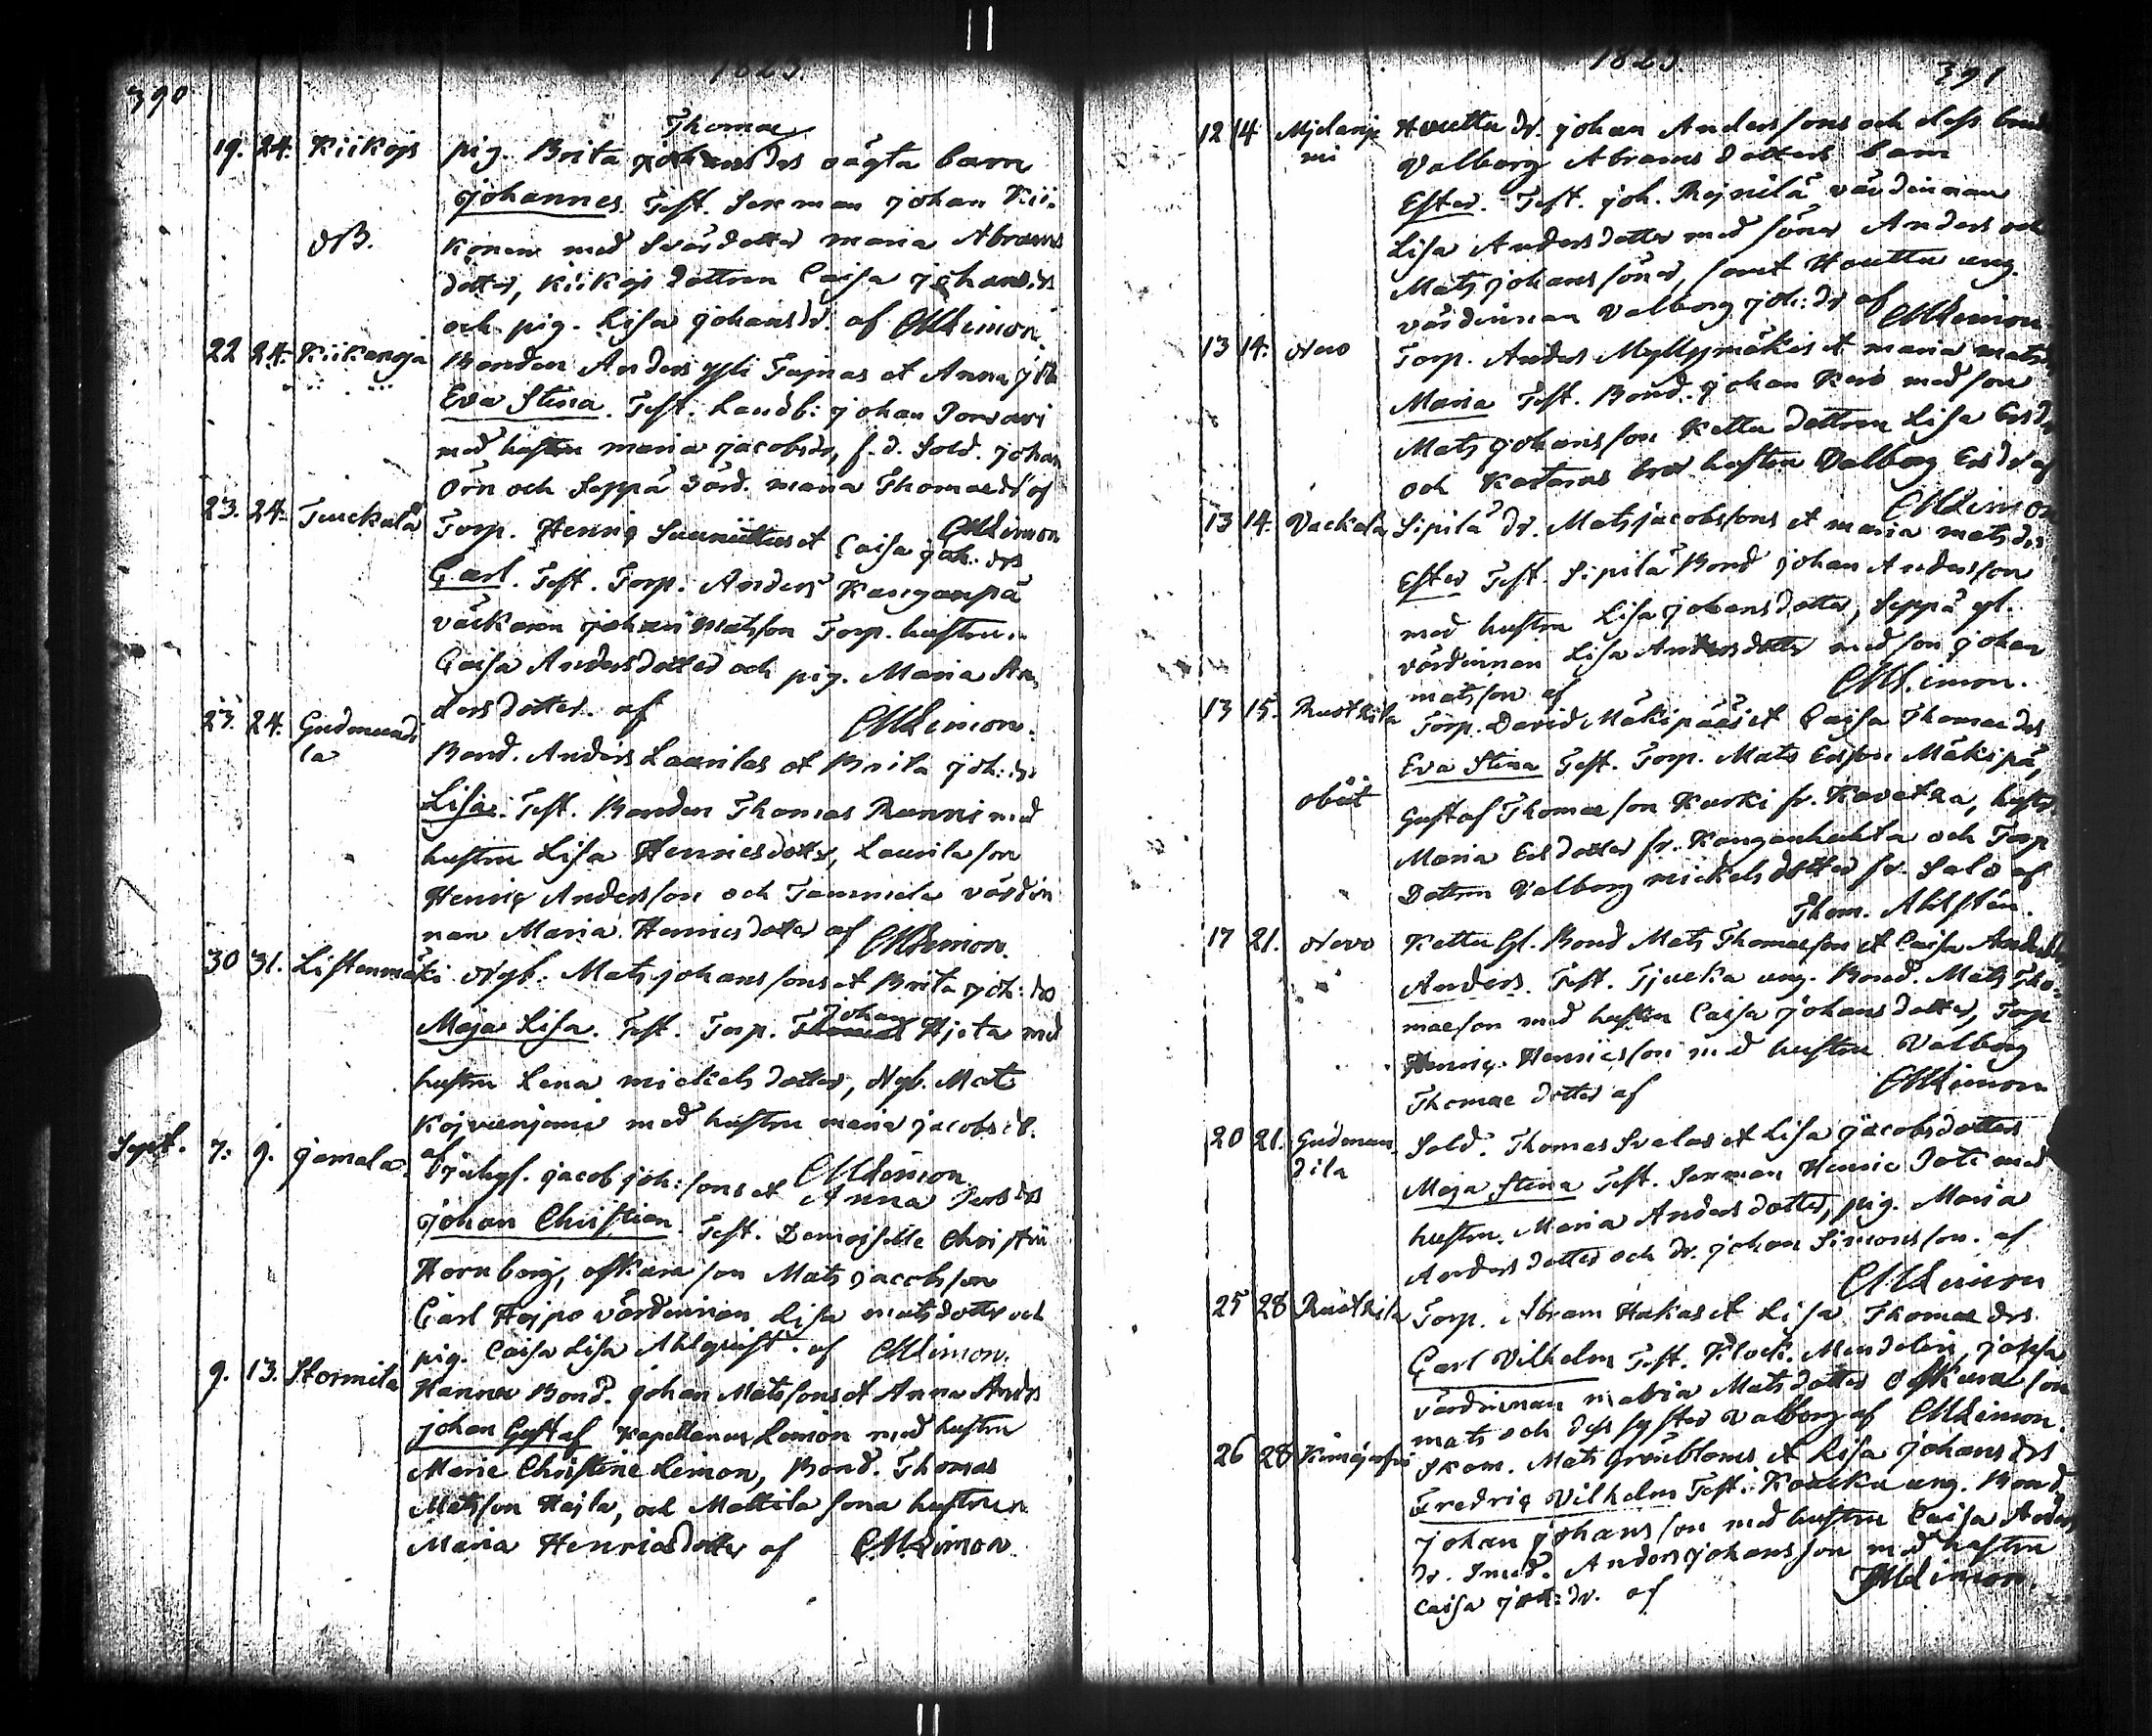 390
1823.
Thomae
19. 24. Kiikojs pig. Brita drs oägta barn
Johannes. Test. Serman Johan Kii-
NB. konen med Svärdotter Maria Abrams
dotter, Kiikojs Dottren Caisa Johansdr
och pig. Lisa Johansdr. af CMLimon.
22 24. Kiikanoja Bonden Anders Yli Tajnas et Anna Joh
Eva Stina. Test. Landb: Johan
med hustru Maria Jacobsdr, f.d. Sold. Johan
Örn och Seppä värd. Maria Thomaedr af
CMLimon
23. 24. Torp. Henriq et Caisa Joh. drs
Carl. Test. Torp. Anders Kanganpä
Johan Matsson Torp. hustrun
Caisa Andersdotter och pig. Maria An-
dersdotter. af CMLimon.
23. 24. Gudmundi
la Bond. Anders Laurilas et Brita Joh: drs
Lisa. Test. Bonden Thomas med
hustru Lisa Henricsdotter, Laurila son
Henriq Andersson och Tammela värdin
nan Maria Henricsdotter af CMLimon.
30 31. Listenmäki Nyb. Mats Johanssons et Brita Joh: drs
Johan
Maja Lisa. Test. Torp. Thomas Hjeta med
hustru Lena Mickelsdotter, Nyb. Mats
Kojvunjemi med hustru Maria Jacobsdr.
af CMLimon.
Sept. 7. 9. Jamala. Jacob Joh: sons et Anna drs
Johan Christian. Test. Demoiselle Christin
Hornborg, son Mats Jacobsson
Carl Hejpo värdinnan Lisa Matsdotter och
pig. Caisa Lisa Ahlqvist. af CMLimon.
9. 13. Stormila Hannu Bond. Johan Matssons et Anna Andrs
Johan Gustaf Kapellanus Limon med hustru
Marie Christine Limon, Bond. Thomas
Matsson Hejla, och Mattila sona hustrun
Maria Henricsdotter af CMLimon
1823.
391
12 14 Mjelanje
mi Houttu dr. Johan Anderssons och dess
Valborg Abramsdotters barn
Ester. Test. Joh. Rejnilä värdinnan
Lisa Andersdotter med söner Anders och
Mats Johanssöner, samt Houttu ung.
värdinnan Valborg Joh: dr af CMLimon
13 14. Novo Torp. Anders Myllymäkis et Maria Mats
Maria Test. Bond. Johan med son
Mats Johansson Kettu dottren Lisa Ersdr
och hustru Valborg Ersdr af
CMLimon
13 14. Vackala Sipilä dr. Mats Jacobssons et Maria Matsdrs
Ester Test. Sipilä Bond Johan Andersson
med hustru Lisa Johansdotter, Seppä gl.
värdinnan Lisa Andersdotter med son Johan
Matsson af CMLimon.
13 15. Ruotsila Torp. David Mäkipääs et Caisa Thomae drs
Eva Stina Test. Torp. Mats Ersson Mäkipä,
Gustaf Thomaeson Kurki fr. Kavatka, hustr.
Maria Ersdotter fr. Kanganhuhta och Torp
Dottren Valborg Mickelsdotter fr. Salo af
Thom. Ahlstén.
17 21. Novo Kettu Gl. Bond Mats Thomaeson et Caisa
Anders. Test. Tjucka ung. Bond. Mats Tho-
maeson med hustru Caisa Johansdotter, Torp
Henriq Henricsson med hustru Valborg
Thomae dotter af CMLimon
20 21. Gudmun
dila Sold. Thomas Svalas et Lisa Jacobsdotters
Maja Stina Test. Serman Henric med
hustru Maria Andersdotter, pig. Maria
Andersdotter och dr. Johan Simonsson. af
CMLimon
25 28 Ruotsila Torp. Abram Hakas et Lisa Thomae drs
Carl Vilhelm Test. Klock. Mendelin,
värdinnan Maria Matsdotter son
Mats och dess syster Valborg af CMLimon.
26 28 Skom. Mats Grönbloms et Lisa Johansdrs
Fredriq Vilhelm Test. ung. Bond
Johan Johansson med hustru Caisa Anders
dr. Smed. Anders Johansson med hustru
Caisa Joh: dr. af CMLimon.